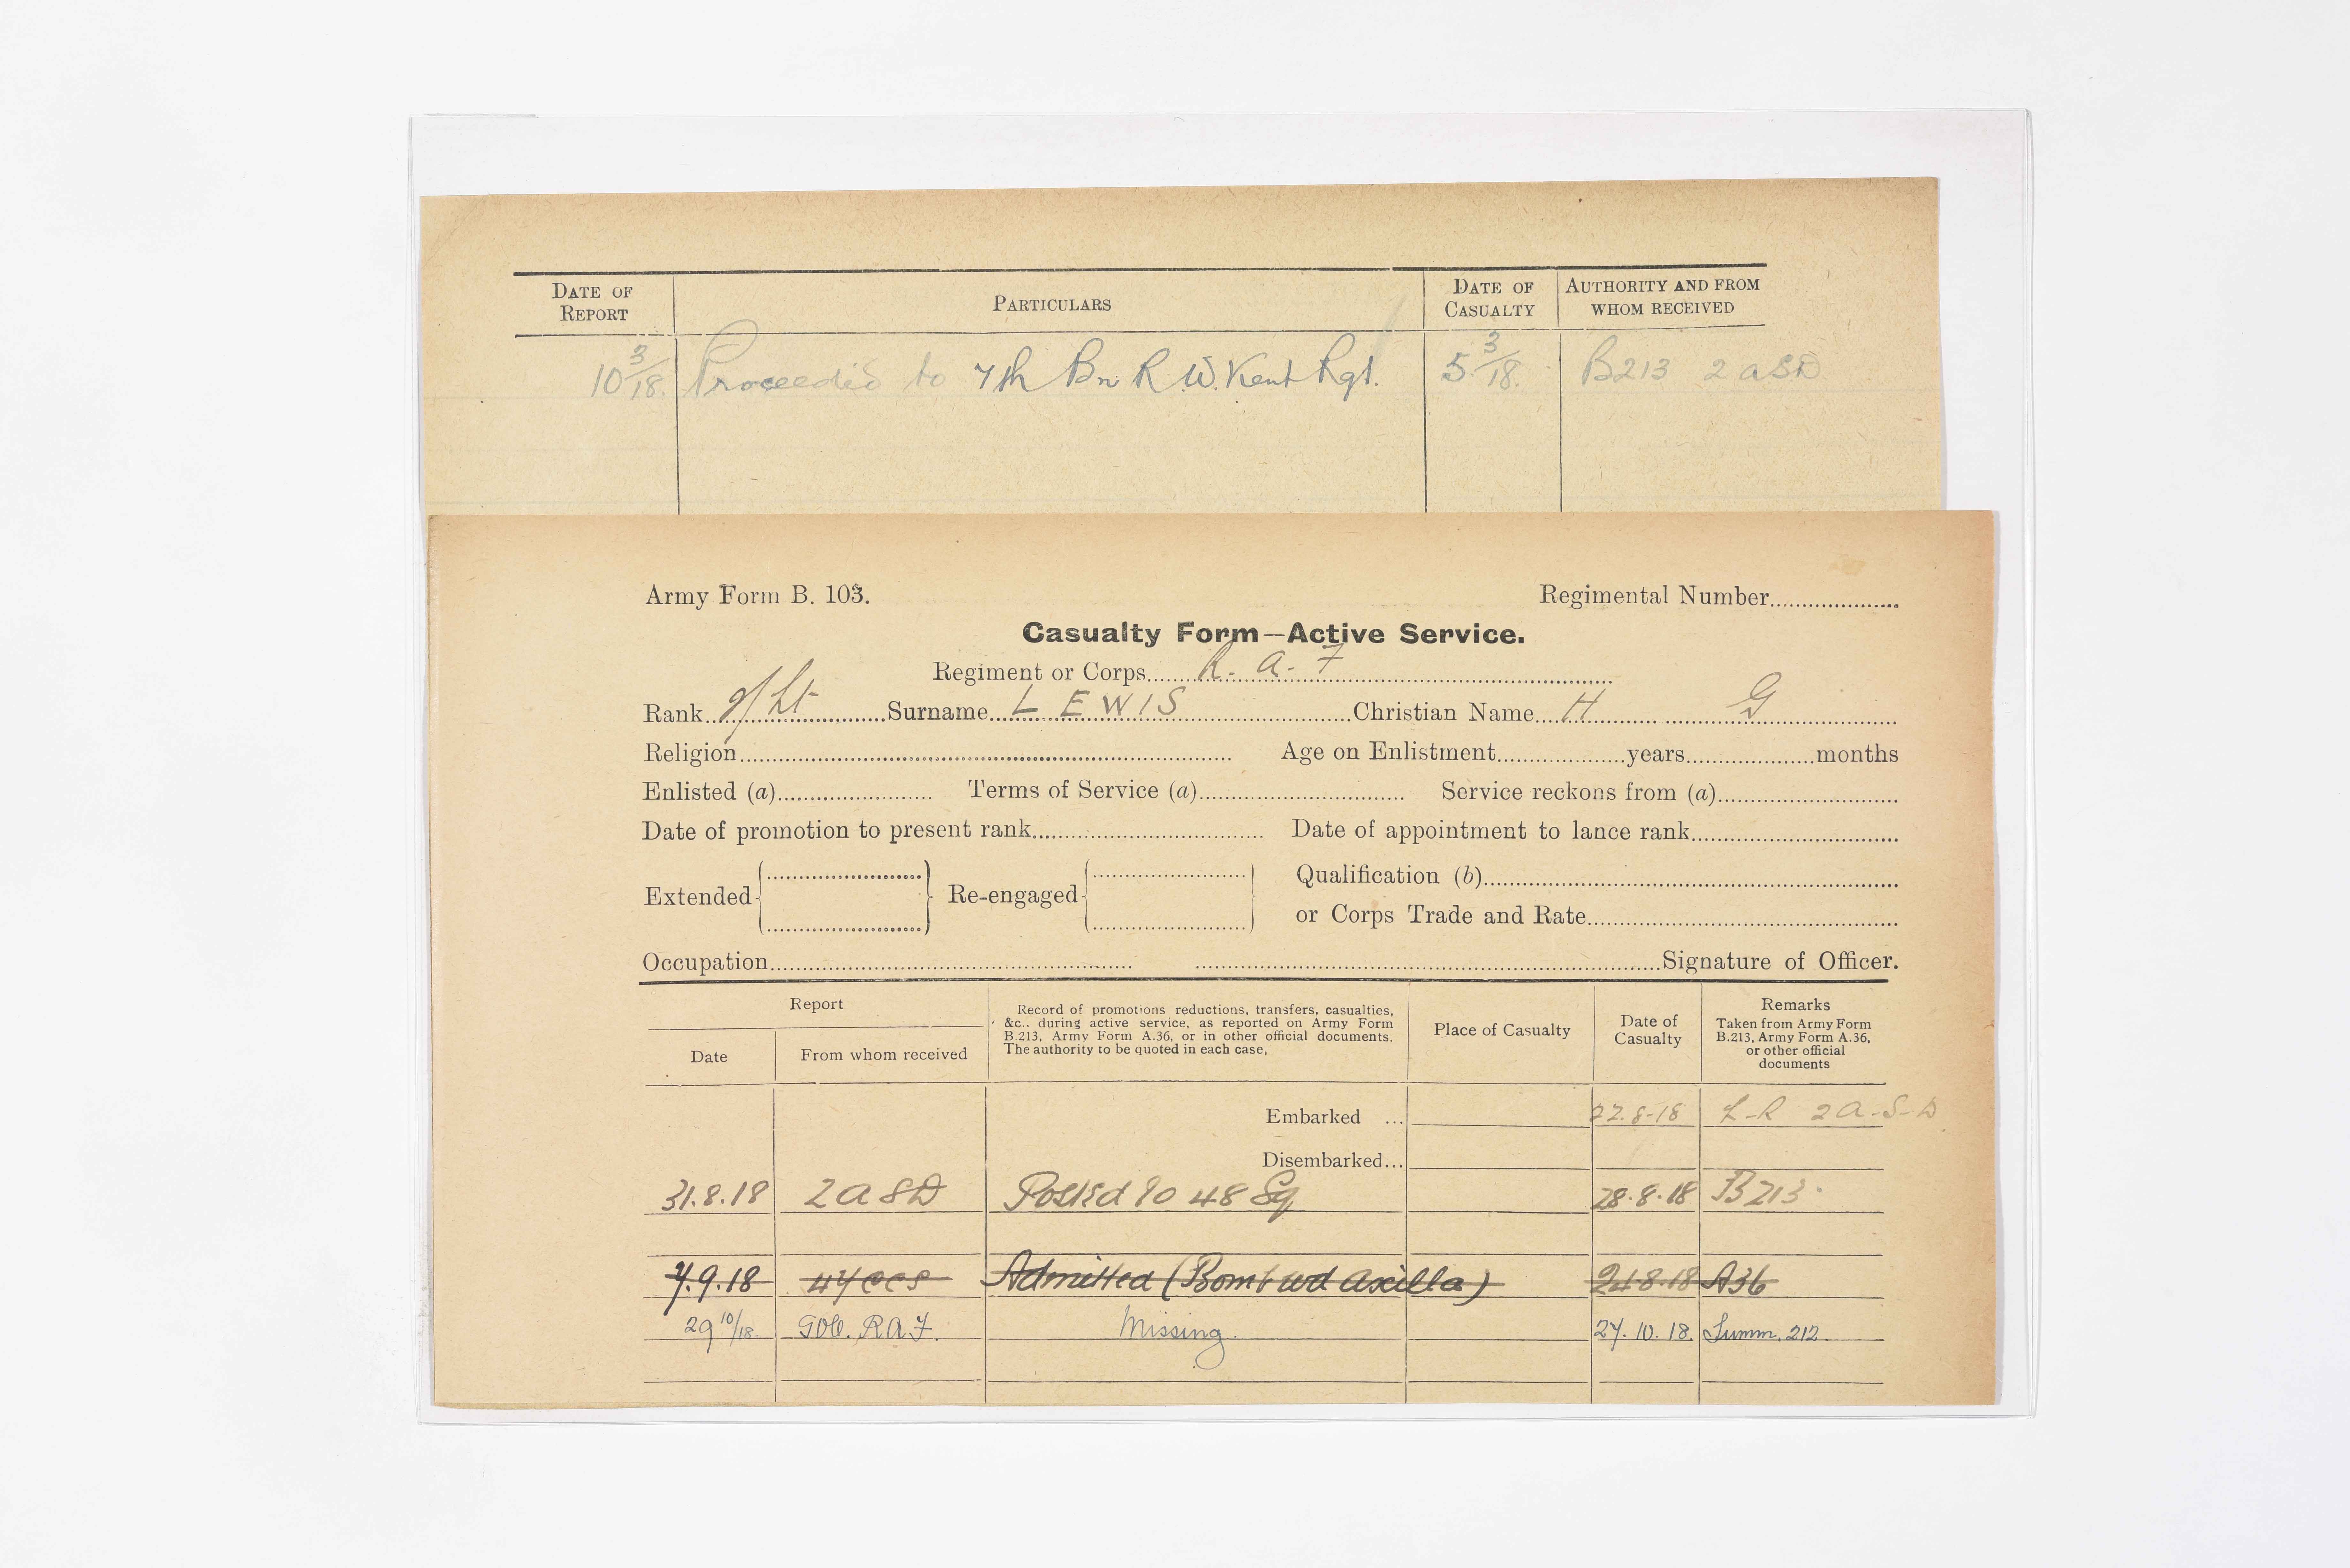 DATE OF REPORT PARTICULARS DATE OF CASUALTY AUTHORITY AND FROM WHOM RECEIVED
10 3/18. Proceeded to 7th Bn R.W. Kent Rgt. 5 3/18. B213 2 ASD
Army Form B. 103. Regimental Number
Casualty Form—Active Service.
Regiment or Corps R. A. F
Rank 2/Lt Surname LEWIS Christian Name H G
Religion Age on Enlistment years months
Enlisted (a) Terms of Service (a) Service reckons from (a)
Date of promotion to present rank Date of appointment to lance rank
Extended Re-engaged Qualification (b)
or Corps Trade and Rate
Occupation Signature of Officer.
Report
Date From whom received
Record of promotions reductions, transfers, casualties,
&c.. during active service, as reported on Army Form
B.213, Army Form A.36, or in other official documents.
The authority to be quoted in each case,
Place of Casualty
Date of Casualty
Remarks
Taken from Army Form
B.213, Army Form A.36,
or other official
documents
Embarked ... 22.8-18 L-R 2 A-S-D
Disembarked...
31.8.18 2 ASD Posted to 48 Sq 28.8.18 B213.
7.9.18 47 CCS Admitted (Bomb wd axilla) 24.8.18 A36
29 10/18. GOC. RAF. Missing. 27.10.18. Summ. 212